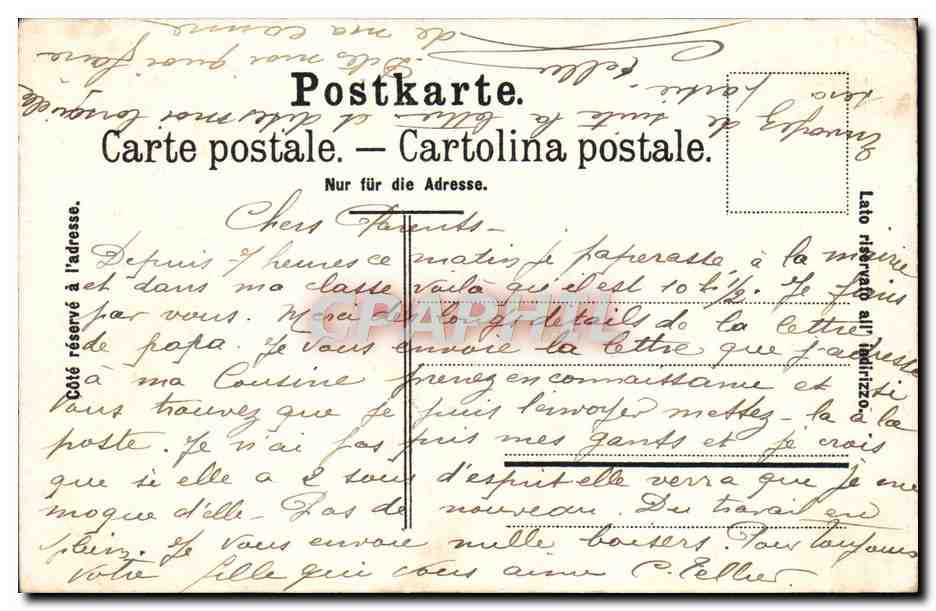 Postkarte.
Carte postale. — Cartolina postale.
Nur für die Adresse.
Côté réservé à l'adresse.
Lato riservato all' indirizzo.
Chers Parents –
Depuis 7 heures ce matin je paperasse à la mairie
et dans ma classe voilà qu'il est 10 h 1/2. Je finis
par vous. Merci des longs details de la lettre
de papa. Je vous envoie la lettre que j'adresse
à ma Cousine prenez en connaissance et si
vous trouvez que je puis l'envoyer mettez-la à la
poste. Je n'ai pas pris mes gants et je crois
que si elle a 2 sous d'esprit elle verra que je me
moque d'elle – Pas de nouveau. Du travail en
plein. Je vous envoie mille baisers. Pour toujours
votre fille qui vous aime C. Tellier.
Envoyez de suite la lettre et dites moi lorsqu'elle
sera partie –
Dites moi quoi faire
de ma canne
CPARAMA